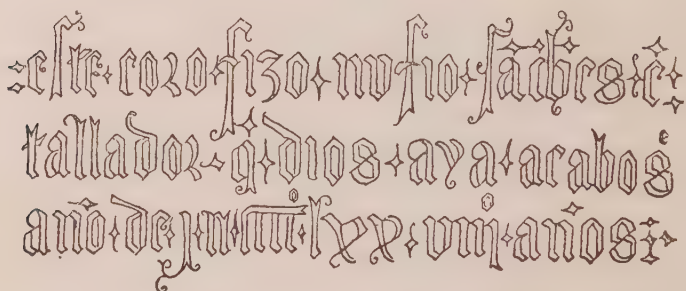 este · coro · fizo · nufro · sāches · ē ·
tallador · q̄ · dios · aya · acabosᵉ
año · de · j · m · iiiiº · lxx · viijº · años